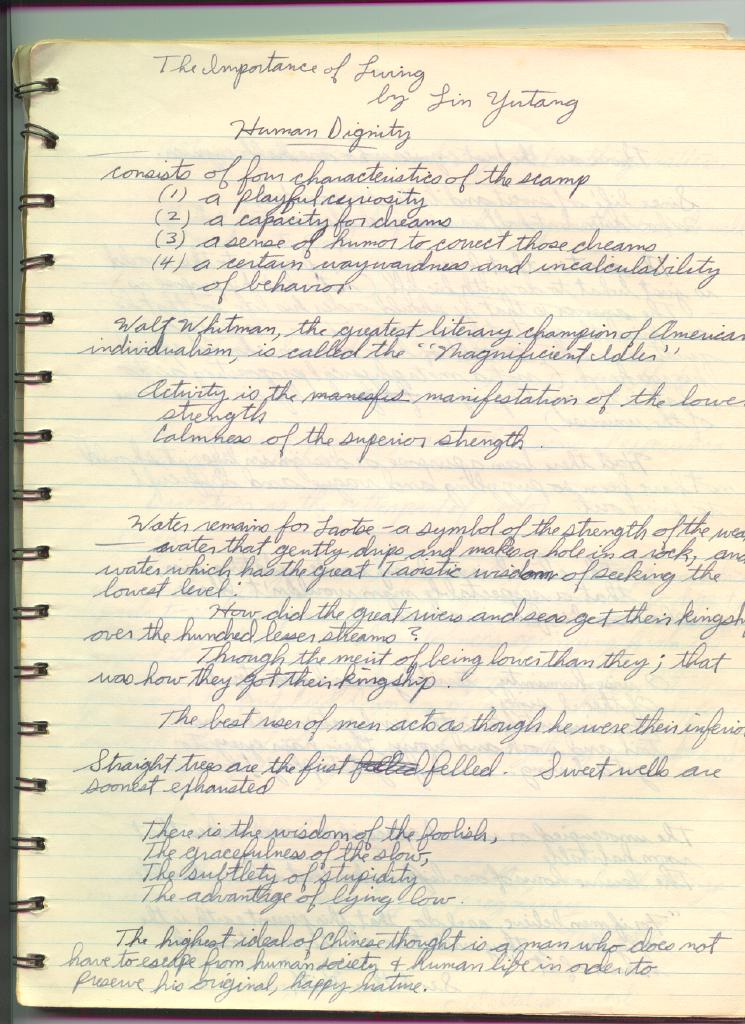 The Importance of Living
by Lin Yutang
Human Dignity
consists of four characteristics of the scamp
(1) a playful curiosity
(2) a capacity for dreams
(3) a sense of humor to correct those dreams
(4) a certain waywardness and incalculability
of behavior.
Walt Whitman, the greatest literary champion of American
individualism, is called the "Magnificient Idler"
Activity is the manesfes manifestation of the lower
strength
Calmness of the superior strength.
Water remains for Laotse - a symbol of the strength of the wea
water that gently drips and makes a hole in a rock, and
water which has the great Taoistic wisdom of seeking the
lowest level:
How did the great rivers and seas get their kingsh
over the hundred lesser streams?
Through the merit of being lower than they; that
was how they got their kingship.
The best user of men acts as though he were their inferio
Straight trees are the first felled felled. Sweet wells are
soonest exhausted
There is the wisdom of the foolish,
The gracefulness of the slow,
The subtlety of stupidity
The advantage of lying low.
The highest ideal of Chinese thought is a man who does not
have to escape from human society & human life in order to
preserve his original, happy nature.